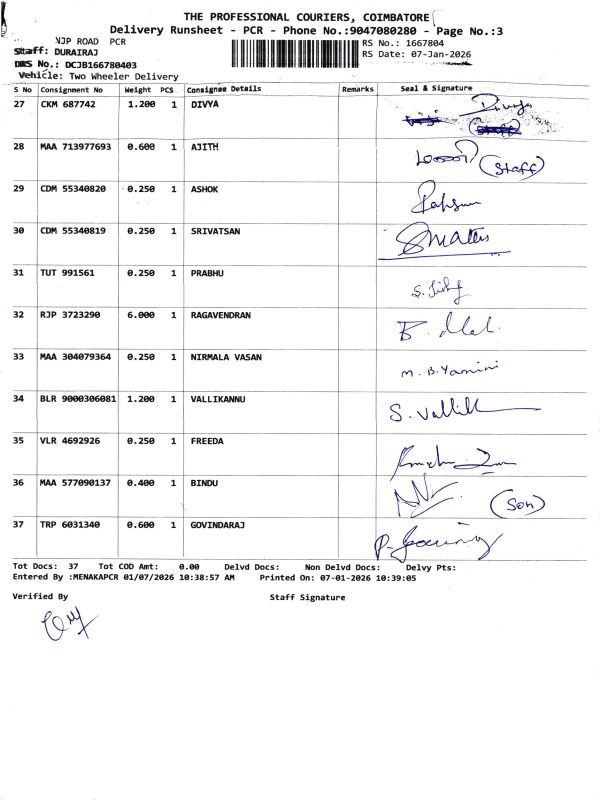 THE PROFESSIONAL COURIERS, COIMBATORE
Delivery Runsheet - PCR - Phone No.:9047080280 - Page No.:3
NJP ROAD PCR
RS No.: 1667804
Staff: DURAIRAJ
RS Date: 07-Jan-2026
DRS No.: DCJB166780403
Vehicle: Two Wheeler Delivery
S No Consignment No Weight PCS Consignee Details Remarks Seal & Signature
27 CKM 687742 1.200 1 DIVYA Divya
28 MAA 713977693 0.600 1 AJITH (Staff)
29 CDM 55340820 0.250 1 ASHOK
30 CDM 55340819 0.250 1 SRIVATSAN
31 TUT 991561 0.250 1 PRABHU
32 RJP 3723290 6.000 1 RAGAVENDRAN
33 MAA 304079364 0.250 1 NIRMALA VASAN M. B. Yamini
34 BLR 9000306081 1.200 1 VALLIKANNU
35 VLR 4692926 0.250 1 FREEDA
36 MAA 577090137 0.400 1 BINDU (Son)
37 TRP 6031340 0.600 1 GOVINDARAJ
Tot Docs: 37 Tot COD Amt: 0.00 Delvd Docs: Non Delvd Docs: Delvy Pts:
Entered By :MENAKAPCR 01/07/2026 10:38:57 AM Printed On: 07-01-2026 10:39:05
Verified By Staff Signature